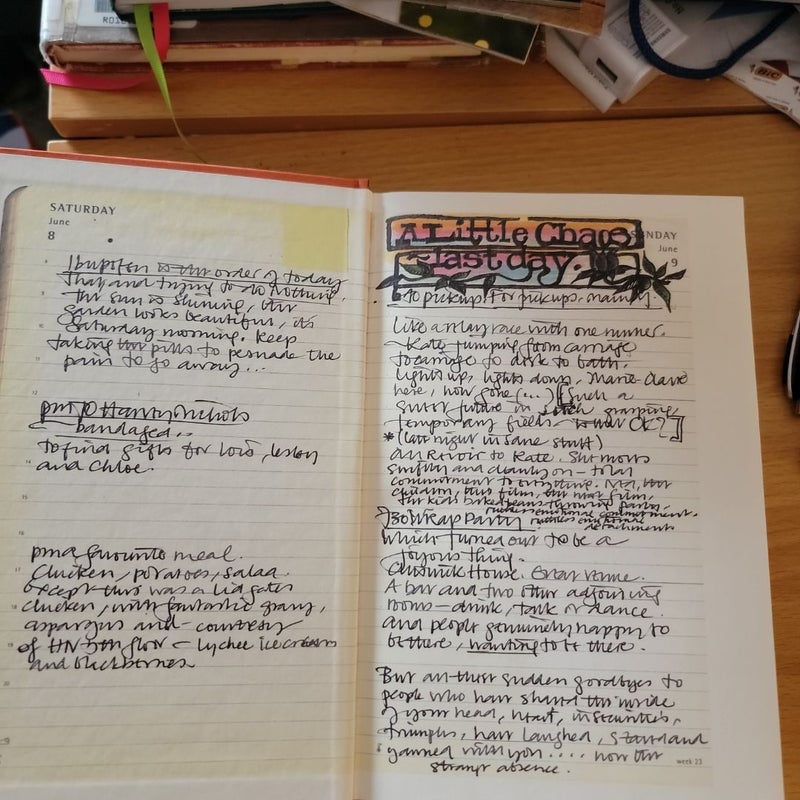 SATURDAY
June
8
Ibuprofen is the order of today
that and trying to do nothing.
The sun is shining, the
garden looks beautiful, it's
Saturday morning. Keep
taking the pills to persuade the
pain to go away...
pm to Harvey Nichols
bandaged..
to find gifts for Lois, Lesley
and Chloe.
pm a favourite meal.
Chicken, potatoes, salad.
except this was a
chicken, with fantastic gravy,
aspargus and - courtesy
of HN 5th floor - lychee ice cream
and blackberries
A Little Chaos
last day.
SUNDAY
June
9
to pickup, for pickups, mainly.
Like a relay race with one runner.
Kate jumping from carriage
to carriage to desk to bath.
Lights up, lights down, Marie-Claire
here, now gone (...) [Such a
future in such grasping
temporary fields - OK?]
* (late night insane stuff)
Au Revoir to Kate. She moves
swiftly and cleanly on - total
commitment to everything. Ned, the
children, this film, the next film,
the kids baked beans throwing party,
ruthless emotional commitment.
ruthless emotional
detachments
7.30 Wrap Party
which turned out to be a
joyous thing.
Chiswick House. Great venue.
A bar and two other adjoining
rooms - drink, talk or dance.
and people genuinely happy to
be there, wanting to be there.
But all these sudden goodbyes to
people who have shared the inside
of your head, heart, insecurities,
triumphs, have laughed, stared and
yawned with you.... now the
strange absence.
week 23
BIC